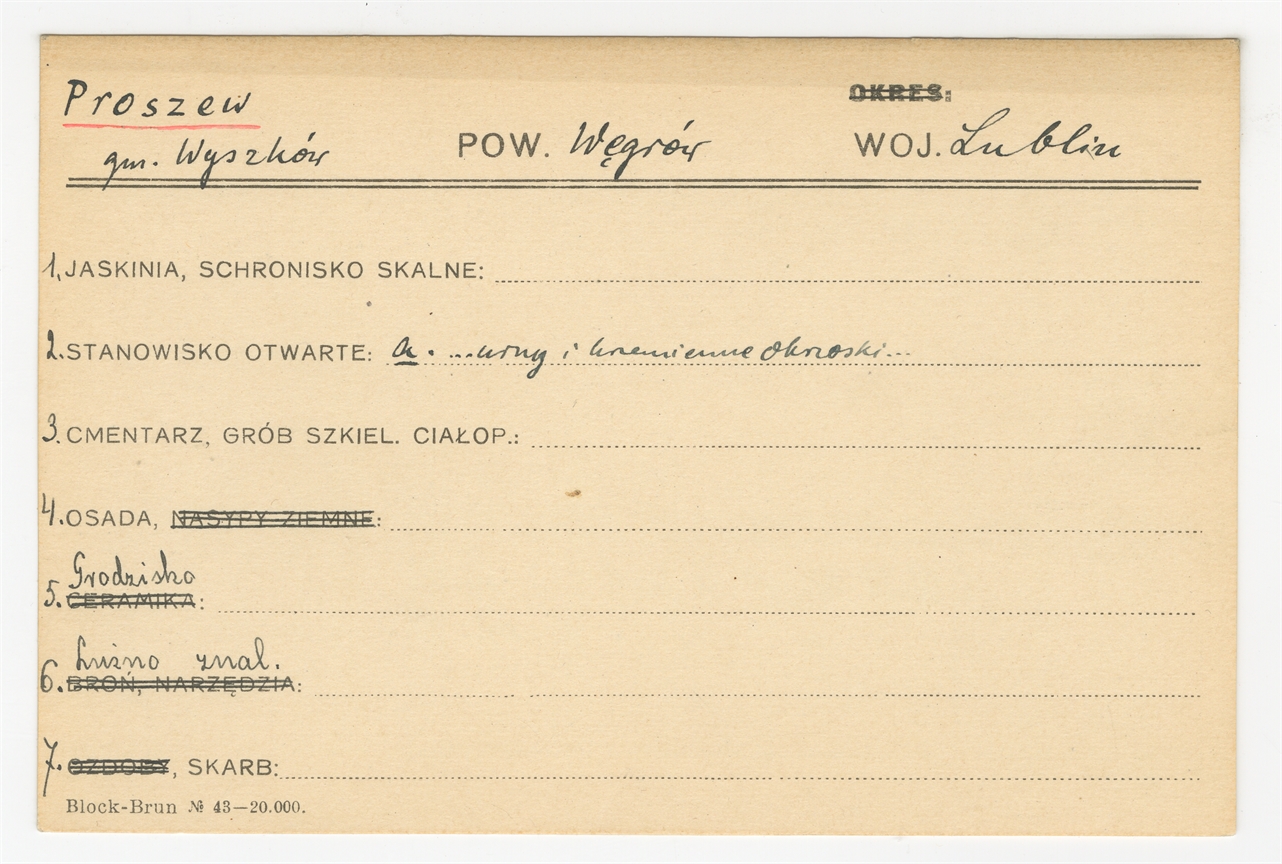 Proszew
OKRES:
gm. Wyszków POW. Węgrów WOJ. Lublin
1. JASKINIA, SCHRONISKO SKALNE:
2. STANOWISKO OTWARTE: a. ...urny i krzemienne okrzoski...
3. CMENTARZ, GRÓB SZKIEL. CIAŁOP.:
4. OSADA, NASYPY ZIEMNE:
Grodzisko
5. CERAMIKA:
Luźno znal.
6. BROŃ, NARZĘDZIA:
7. OZDOBY, SKARB:
Block-Brun № 43—20.000.